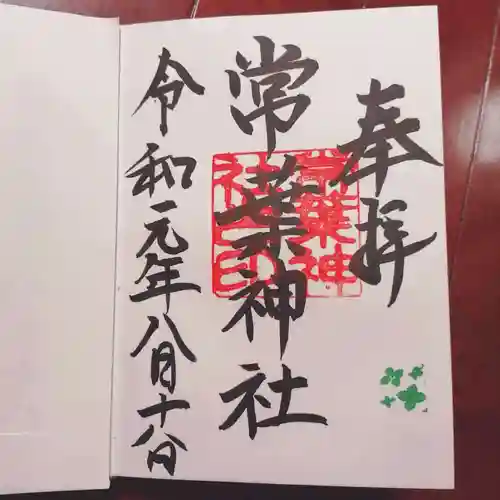 奉拝
常葉神社
常葉神
社印
令和元年八月十八日